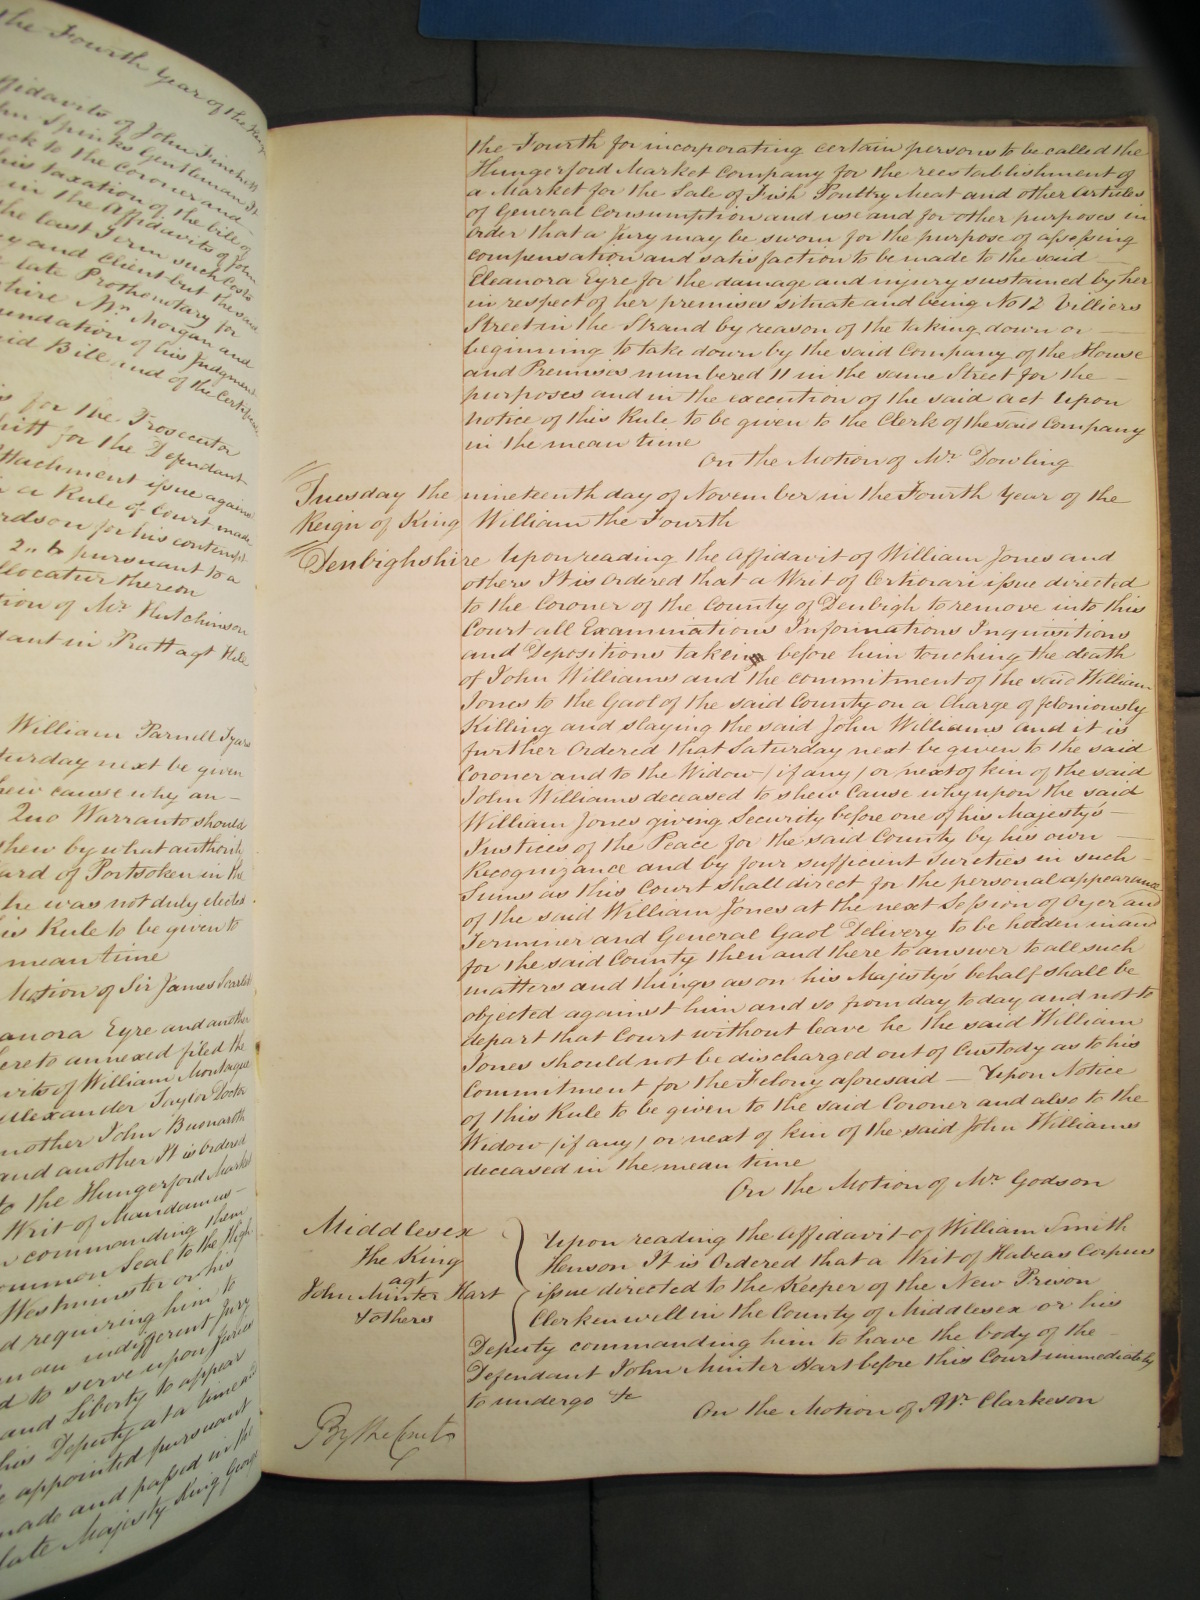 the Fourth Year of the King
ffidavits of John Finchett
hn Spinks Gentleman It
ck to the Coroner and
his taxation of the bill of
in the Affidavits of John
the last Term such Costs
ey and Client but the said
late Prothonotary for
hire Mr. Morgan and
undation of his Judgment
id Bill and of the Certificate
s for the Prosecutor
hitt for the Defendant
ttachment issue against
a Rule of Court made
rdson for his contempt
pursuant to a
llocatur thereon
tion of Mr. Hutchinson
dant in Pratt agt Hile
William Parnell Tyars
turday next be given
hew cause why an
Quo Warranto should
shew by what authority
ard of Portsoken in the
he was not duly elected
is Rule to be given to
mean time
Motion of Sir James Scarlett
anora Eyre and another
here to annexed filed the
vits of William Montague
Alexander Taylor Doctor
nother John Buonarotti
and another It is Ordered
to the Hungerford Market
Writ of Mandamus
commanding them
ommon Seal to the High
Westminster or his
d requiring him to
an indifferent Jury
d to serve upon Juries
and Liberty to appear
his Deputy at a time and
e appointed pursuant
made and passed in the
late Majesty King George
the Fourth for incorporating certain persons to be called the
Hungerford Market Company for the reestablishment of
a Market for the Sale of Fish Poultry Meat and other Articles
of General Consumption and use and for other purposes in
order that a Jury may be sworn for the purpose of assessing
compensation and satisfaction to be made to the said
Eleanora Eyre for the damage and injury sustained by her
in respect of her premises situate and being No 12 Villiers
Street in the Strand by reason of the taking down or
beginning to take down by the said Company of the House
and Premises numbered 11 in the same Street for the
purposes and in the execution of the said act Upon
notice of this Rule to be given to the Clerk of the said Company
in the mean time
On the Motion of Mr. Dowling
Tuesday the nineteenth day of November in the Fourth Year of the
Reign of King William the Fourth
Denbighshire Upon reading the Affidavit of William Jones and
others It is Ordered that a Writ of Certiorari issue directed
to the Coroner of the County of Denbigh to remove into this
Court all Examinations Informations Inquisitions
and Depositions taken before him touching the death
of John Williams and the commitment of the said William
Jones to the Gaol of the said County on a Charge of feloniously
Killing and slaying the said John Williams and it is
further Ordered that Saturday next be given to the said
Coroner and to the Widow (if any) or next of kin of the said
John Williams deceased to shew Cause why upon the said
William Jones giving Security before one of his Majesty's
Justices of the Peace for the said County by his own
Recognizance and by four sufficient Sureties in such
Sums as this Court shall direct for the personal appearance
of the said William Jones at the next Session of Oyer and
Terminer and General Gaol Delivery to be holden in and
for the said County then and there to answer to all such
matters and things as on his Majesty's behalf shall be
objected against him and so from day to day and not to
depart that Court without leave he the said William
Jones should not be discharged out of Custody as to his
Commitment for the Felony aforesaid — Upon Notice
of this Rule to be given to the said Coroner and also to the
Widow (if any) or next of kin of the said John Williams
deceased in the mean time
On the Motion of Mr. Godson
Middlesex
The King
agt
John Minter Hart
& others
Upon reading the Affidavit of William Smith
Henson It is Ordered that a Writ of Habeas Corpus
issue directed to the Keeper of the New Prison
Clerkenwell in the County of Middlesex or his
Deputy commanding him to have the body of the
Defendant John Minter Hart before this Court immediately
to undergo &c
On the Motion of Mr. Clarkson
By the Court